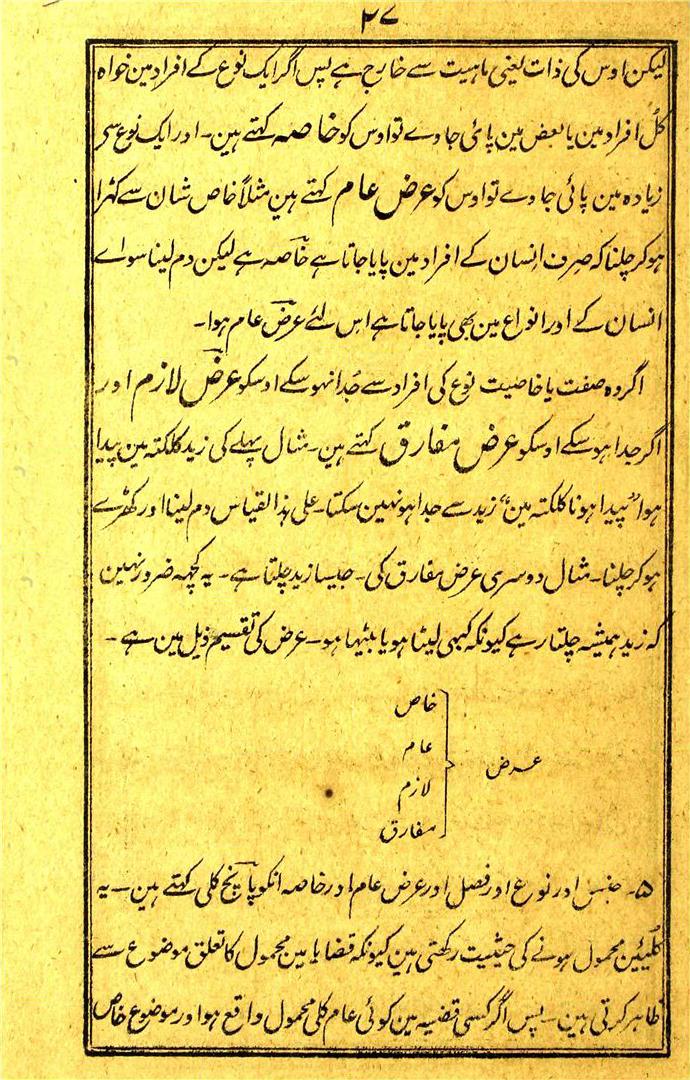 ۲۷
لیکن اوس کی ذات یعنی ماہیت سے خارج ہے پس اگر ایک نوع کے افراد مین خواہ
کل افراد مین یا بعض مین پائی جاوے تو اوس کو خاصہ کہتے ہین۔ اور ایک نوع سی
زیادہ مین پائی جاوے تو اوس کو عرض عام کہتے ہین مثلاً خاص شان سے کہڑا
ہو کر چلنا کہ صرف انسان کے افراد مین پایا جاتا ہے خاصہ ہے لیکن دم لینا سواے
انسان کے اور انواع مین بھی پایا جاتا ہے اس لئے عرض عام ہوا۔
اگر وہ صفت یا خاصیت نوع کی افراد سے جُدا نہو سکے اوسکو عرض لازم اور
اگر جدا ہو سکے اوسکو عرض مفارق کہتے ہین۔ مثال پہلے کی زید کلکتہ مین پیدا
ہوا ”پیدا ہونا کلکتہ مین“ زید سے جدا ہو نہین سکتا۔ علی ہذا القیاس دم لینا اور کھڑے
ہو کر چلنا۔ مثال دوسری عرض مفارق کی۔ جیسا زید چلتا ہے۔ یہ کچہہ ضرور نہین
کہ زید ہمیشہ چلتا رہے کیونکہ کبہی لیٹا ہو یا بیٹہا ہو۔ عرض کی تقسیم ذیل مین ہے۔
عرض
خاص
عام
لازم
مفارق
۵۔ جنس اور نوع اور فصل اور عرض عام اور خاصہ انکو پانچ کلی کہتے ہین۔ یہ
کلیئین محمول ہونے کی حیثیت رکھتی ہین کیونکہ قضایا مین محمول کا تعلق موضوع سے
ظاہر کرتی ہین۔ پس اگر کسی قضیہ مین کوئی عام کلی محمول واقع ہو اور موضوع خاص